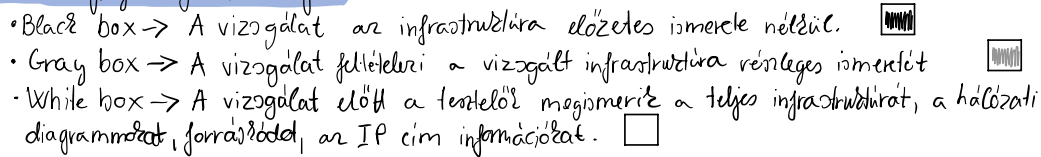 • Black box → A vizsgálat az infrastruktúra előzetes ismerete nélkül.
• Gray box → A vizsgálat feltételezi a vizsgált infrastruktúra részleges ismeretét
• White box → A vizsgálat előtt a tesztelők megismerik a teljes infrastruktúrát, a hálózati
diagrammokat, forráskódot, az IP cím információkat.